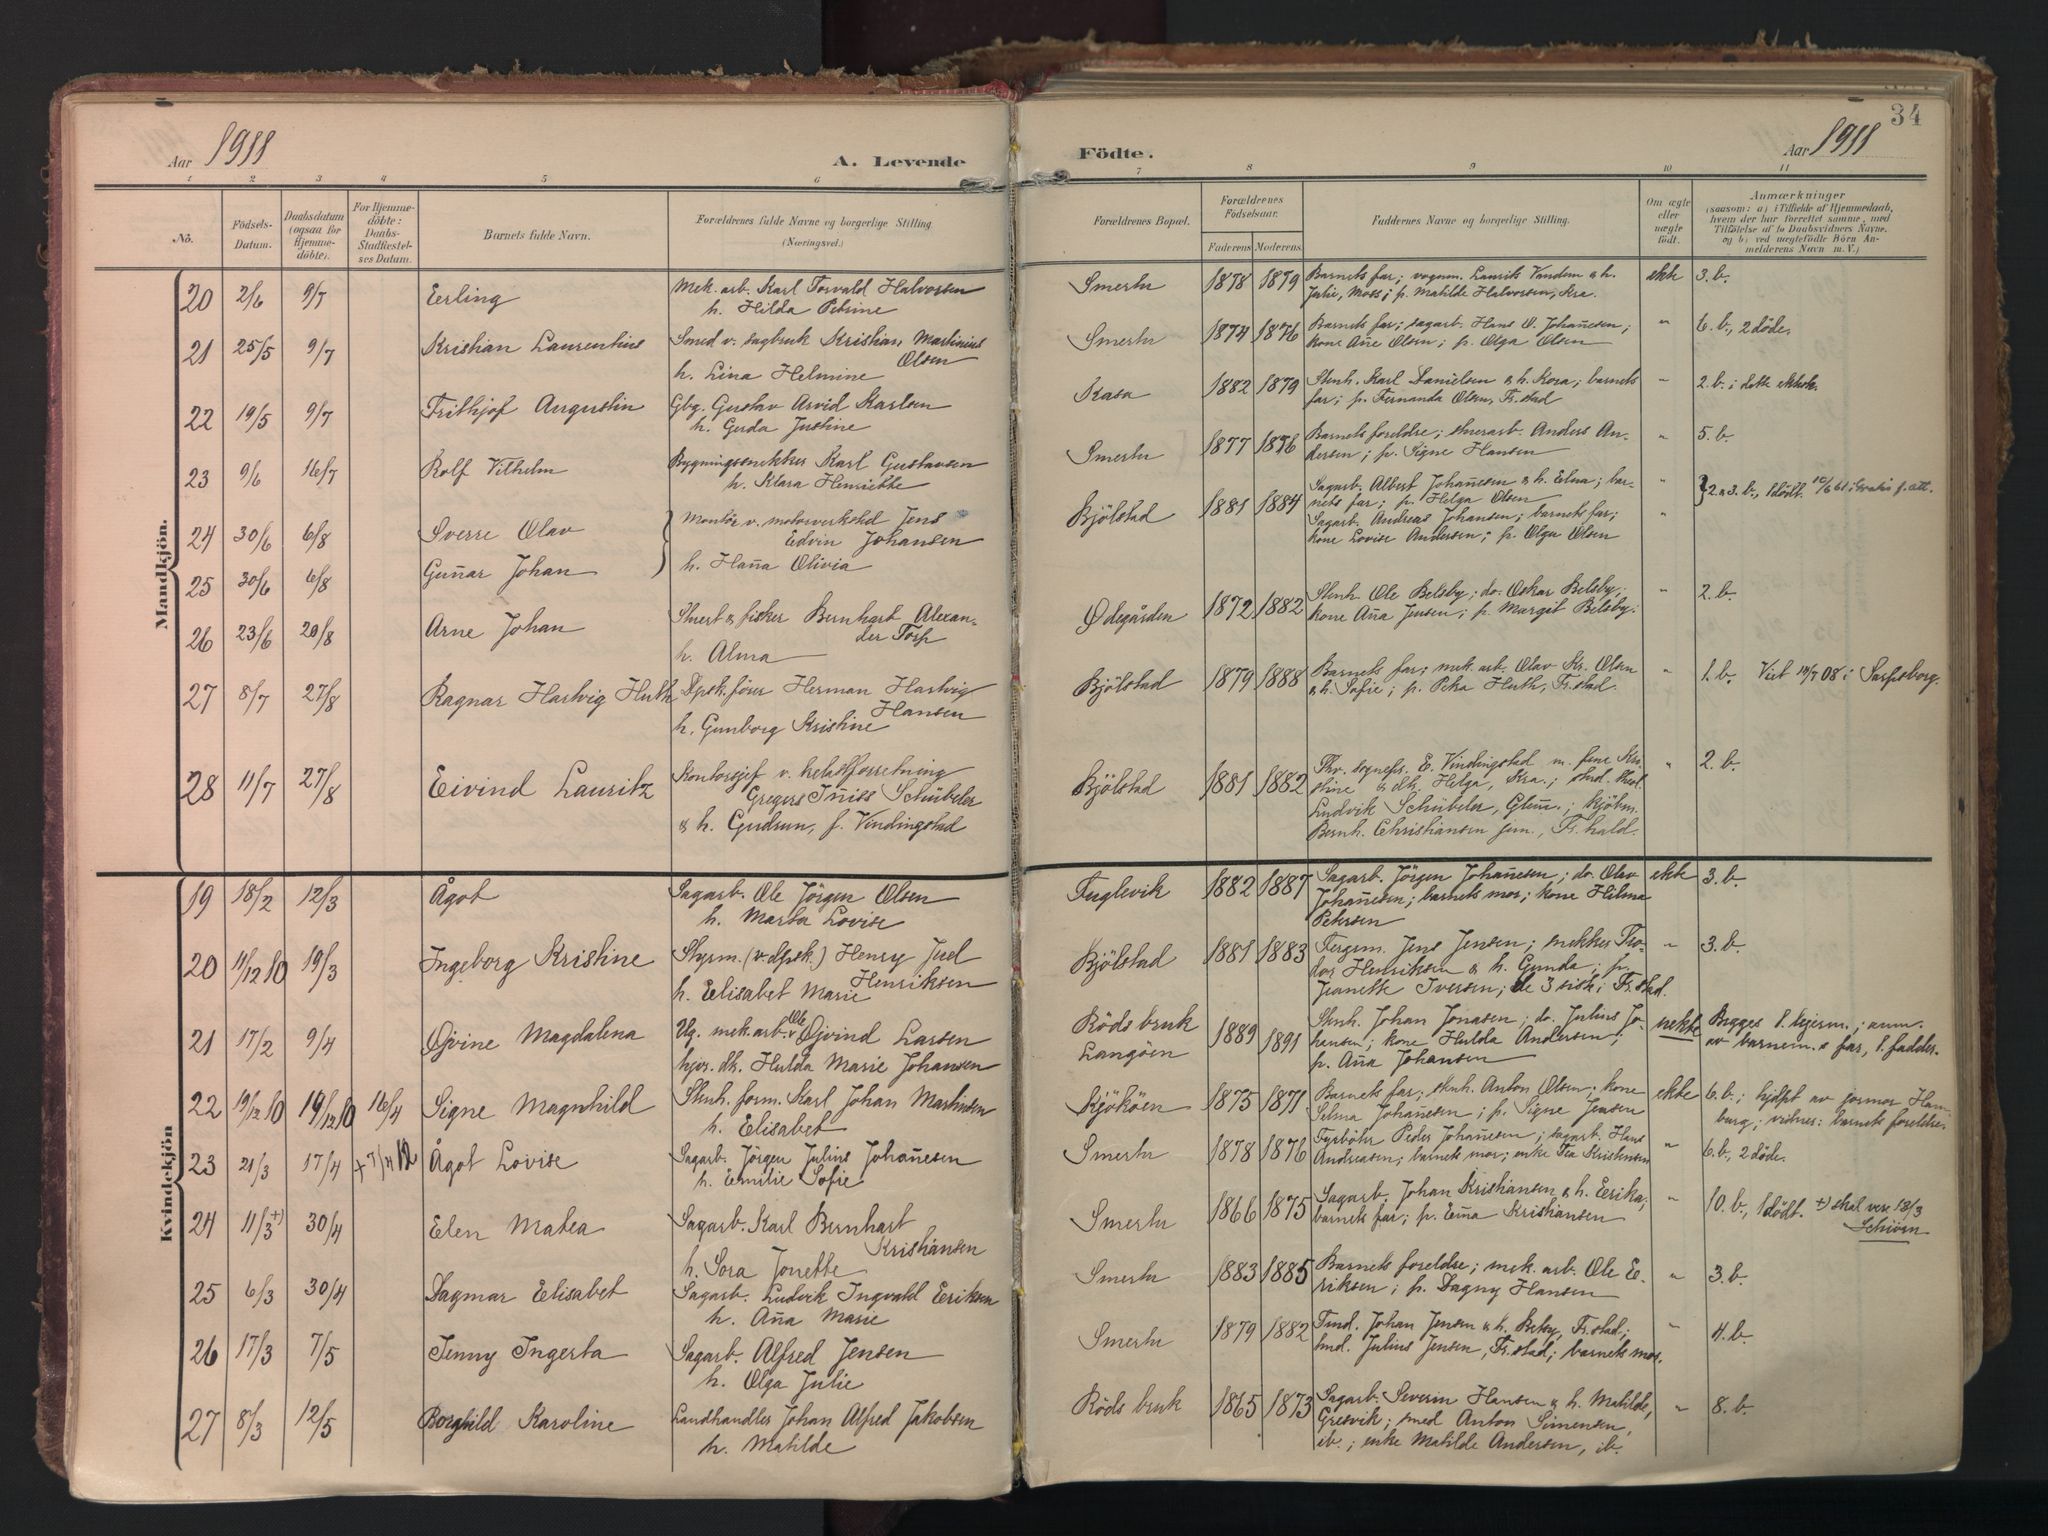 34
Aar 1911
A. Levende
Födte.
Aar 1911
1 2 3 4 5 6 7 8 9 10 11
No.
Födsels-
Datum.
Daabsdatum
(ogsaa for
Hjemme-
döbte).
For Hjemme-
döbte:
Daabs-
Stadfæstel-
ses Datum.
Barnets fulde Navn.
Forældrenes fulde Navne og borgerlige Stilling
(Næringsvei.)
Forældrenes Bopæl.
Forældrenes
Födselsaar.
Faderens Moderens
Faddernes Navne og borgerlige Stilling.
Om ægte
eller
uægte
födt.
Anmærkninger
(saasom: a) i Tilfælde af Hjemmedaab,
hvem der har forrettet samme, med
Tilföielse af to Daabsvidners Navne,
og b) ved uægtefödte Börn An-
melderens Navn m. V.)
Mandkjön.
20 2/6 9/7 Erling
Mek. arb. Karl Torvald Halvorsen
h. Hilda Petrine
Smertu 1878 1879
Barnets far; vognm. Laurits Vandem & h.
Julie, Moss; p. Matilde Halvorsen, Kra.
ekte 3. b.
21 25/5 9/7 Kristian Laurentius
Smed v. sagbruk Kristian Martinius
Olsen
h. Lina Helmine
Smertu 1874 1876
Barnets far; sagarb. Hans O. Johañesen;
kone Añe Olsen; p. Olga Olsen
" 6. b., 2 döde.
22 19/5 9/7 Frithjof Augustin
Gbg. Gustav Arvid Karlsen
h. Gerda Justine
Kasa 1882 1879
Stenh. Karl Danielsen & h. Kora; barnets
far; p. Fernanda Olsen, Fr.stad
" 2. b. i dette ektesk.
23 9/6 16/7 Rolf Vilhelm
Bygningssnekker Karl Gustavsen
h. Klara Henriette
Smertu 1877 1876
Barnets foreldre; stuerarb. Anders An-
dersen; p. Signe Hansen
" 5. b.
24 30/6 6/8 Sverre Olav
25 30/6 6/8 Guñar Johan
Montör v. motorverksted Jens
Edvin Johansen
h. Haña Olivia
Bjölstad 1881 1884
Sagarb. Albert Johañesen & h. Elna; bar-
nets far; p. Helga Olsen
Sagarb. Andreas Johansen; barnets far;
kone Lovise Andersen; p. Olga Olsen
" "
2. & 3. b., 1 dödf. 10/6 61 : Gratis f. att.
26 23/6 20/8 Arne Johan
Stuert & fisker Bernhart Alexan-
der Torp
h. Alma
Ödegården 1872 1882
Stenh. Ole Belsby; do. Oskar Belsby;
kone Aña Jensen; p. Margit Belsby.
" 2. b.
27 8/7 27/8 Ragnar Hartvig Huth
Dpsk.förer Herman Hartvig
Hansen
h. Gunborg Kristine
Bjölstad 1879 1888
Barnets far; mek. arb. Olav Kr. Olsen
& h. Sofie; p. Petra Huth, Fr.stad.
" 1. b. Viet 14/7 08 i Sarpsborg.
28 11/7 27/8 Eivind Lauritz
Kontorsjef v. trelastforretning
Gregers Iñiss Schübeler
& h. Gudrun, f. Vindingstad
Bjölstad 1881 1882
Fhv. sognepr. E. Vindingstad m. frue Kri-
stine & dtr. Helga, Kra.; stud.
Ludvik Schübeler, Glem.; kjöbm.
Bernh. Christiansen jun., Fr.hald.
" 2. b.
Kvindekjön
19 18/2 12/3 Ågot
Sagarb. Ole Jörgen Olsen
h. Marta Lovise
Fuglevik 1882 1887
Sagarb. Jörgen Johañesen; do. Olav
Johañesen; barnets mor; kone Hilma
Petersen
ekte 3. b.
20 11/12 10 19/3 Ingeborg Kristine
Styrm. (v. dpsk.) Henry Juel
Henriksen
h. Elisabet Marie
Bjölstad 1881 1883
Fergem. Jens Jensen; snekker Teo-
dor Henriksen & h. Gunda; p.
Jeanette Iversen; de 3 siste i Fr.stad.
" 3. b.
21 17/2 9/4 Öjvine Magdalena
Ug. mek. arb. Ole Öjvind Larsen
hjv. dtr. Hulda Marie Johansen
Röds bruk
Langöen
1889 1891
Stenh. Johan Jonasen; do. Julius Jo-
hansen; kone Hilda Andersen;
p. Aña Johansen
uekte
Begges 1. lejerm.; anm.
av barnem. & far, 1. fadder.
22 19/12 10 19/12 10 16/4 Signe Magnhild
Stenh. form. Karl Johan Martinsen
h. Elisabet
Kjököen 1875 1871
Barnets far; stenh. Anton Olsen; kone
Selma Johañesen; p. Signe Jensen
ekte
6. b.; hjdpt av jormor Ham-
burg; vidner: barnets foreldre.
23 21/3 17/4 + 7/4 12 Ågot Lovise
Sagarb. Jörgen Julius Johañesen
h. Emilie Sofie
Smertu 1878 1876
Fyrböter Peder Johañesen; sagarb. Hans
Andreasen; barnets mor; enke Tea Kristensen
" 6. b., 2 döde.
24 11/3 +) 30/4 Elen Matea
Sagarb. Karl Bernhart
Kristiansen
h. Tora Jonette
Smertu 1866 1875
Sagarb. Johan Kristiansen & h. Eerika;
barnets far; p. Ema Kristiansen
" 10. b., 1 dödf. +) skal vere 18/3
Schiörn
25 6/3 30/4 Dagmar Elisabet
Sagarb. Ludvik Ingvald Eriksen
h. Aña Marie
Smertu 1883 1885
Barnets foreldre; mek. arb. Ole E-
riksen; p. Dagny Hansen
" 3. b.
26 17/3 7/5 Jenny Ingerta
Sagarb. Alfred Jensen
h. Olga Julie
Smertu 1879 1882
Tmd. Johan Jensen & h. Betsy, Fr.stad;
tmd. Julius Jensen, Fr.stad; barnets mor.
" 4. b.
27 8/3 12/5 Borghild Karoline
Landhandler Johan Alfred Jakobsen
h. Matilde
Röds bruk 1865 1873
Sagarb. Severin Hansen & h. Matilde,
Gresvik; smed Anton Simensen,
ib.; enke Matilde Andersen, ib.
" 8. b.